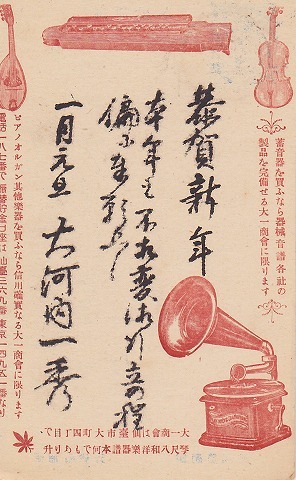 蓄音器を買ふなら器械音譜各社の
製品を完備せる大一商會に限ります
恭賀新年
本年も不相変御引立の程
偏に奉願候
一月元旦 大河内一秀
ピアノオルガン其他樂器を買ふなら信用確實なる大一商會に限ります
電話一八七番で振替貯金口座は仙臺三六九番東京一四九五一番なり
大一商會は仙臺市大町四丁目で、
琴尺八和洋樂器譜本何でもあり升